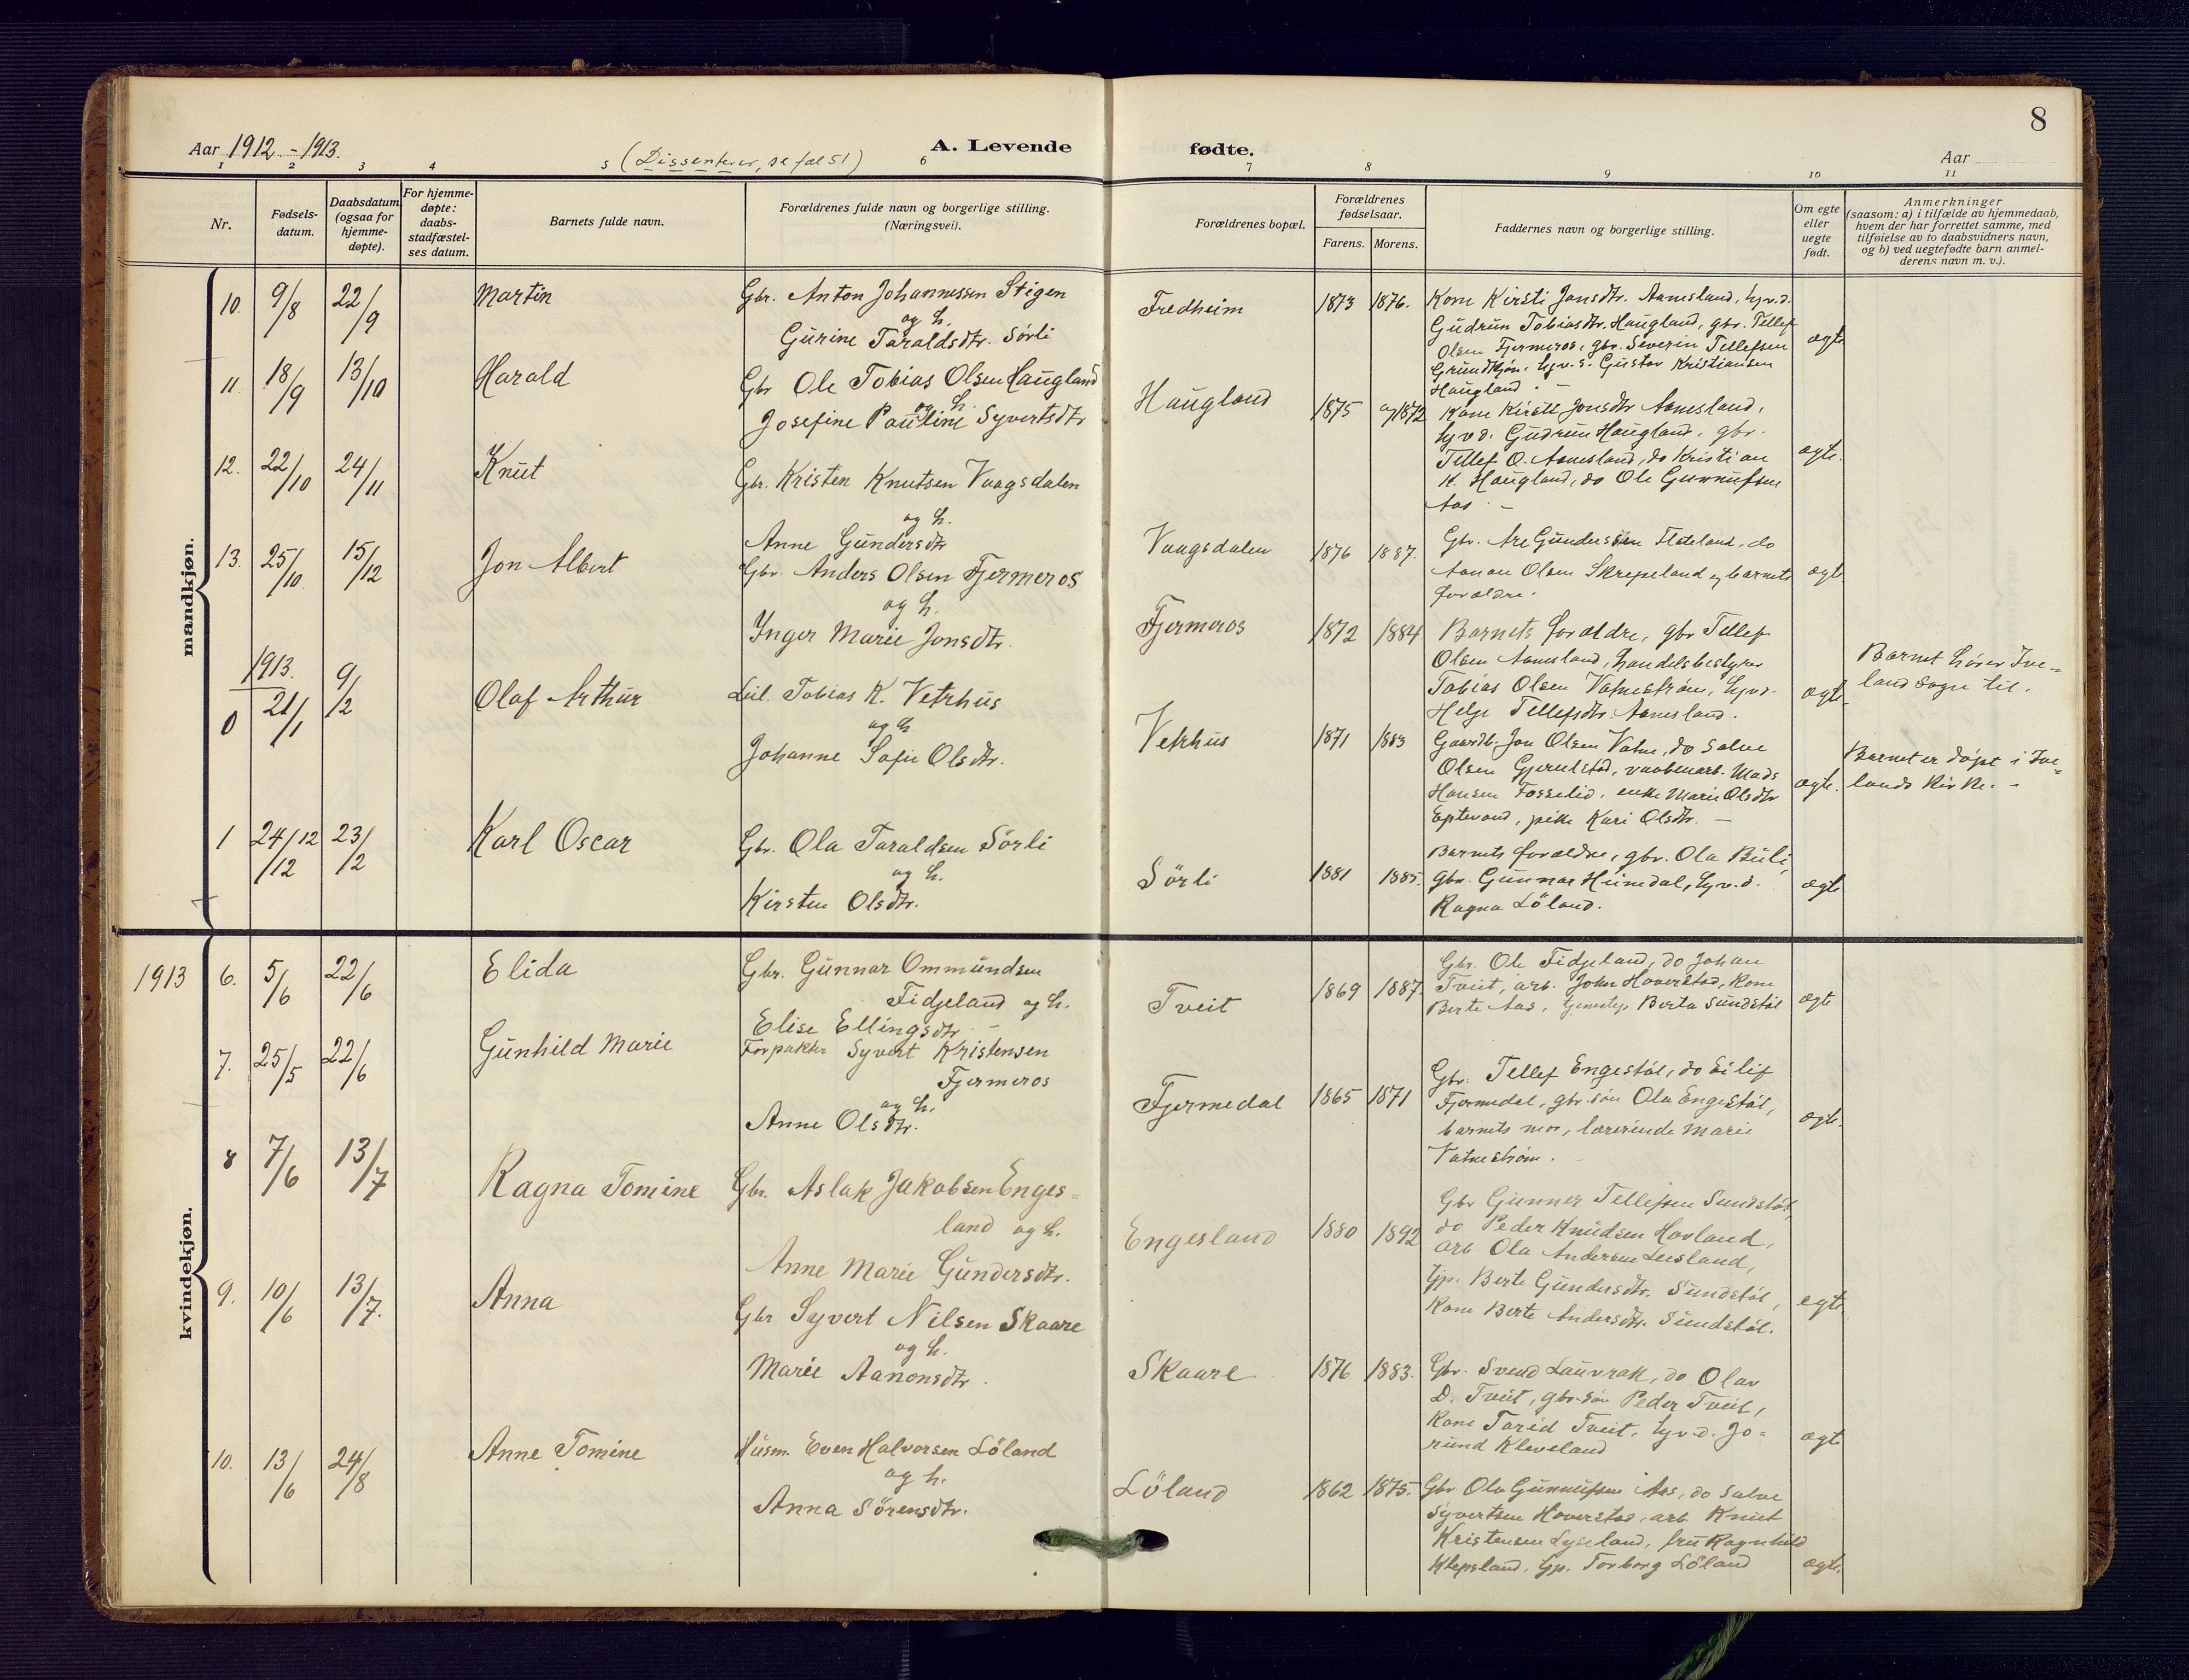 8
Aar 1912 - 1913.
(Dissenterer, se fol 51)
A. Levende fødte.
Aar
1 2 3 4 5 6 7 8 9 10 11
Nr.
Fødsels-
datum.
Daabsdatum
(ogsaa for
hjemme-
døpte).
For hjemme-
døpte:
daabs-
stadfæstel-
ses datum.
Barnets fulde navn.
Forældrenes fulde navn og borgerlige stilling.
(Næringsvei).
Forældrenes bopæl.
Forældrenes
fødselsaar.
Farens. Morens.
Faddernes navn og borgerlige stilling.
Om egte
eller
uegte
født.
Anmerkninger
(saasom: a) i tilfælde av hjemmedaab,
hvem der har forrettet samme, med
tilføielse av to daabsvidners navn,
og b) ved uegtefødte barn anmel-
derens navn m. v.).
mandkjøn.
10. 9/8 22/9 Martin
Gbr. Anton Johannessen Stigen
og h.
Gurine Taraldsdtr. Sørli
Fredheim 1873 1876.
Kone Kirsti Jonsdtr. Aamesland, hv.d.
Gudrun Tobiasdtr. Haugland, gbr. Tellef
Olsen Fjermeros, gbr. Severin Tellefsen
Grundkjøn, Gustav Kristiansen
Haugland.
ægte
11. 18/9 13/10 Harald
Gbr Ole Tobias Olsen Haugland
og h.
Josefine Pauline Syvertsdtr
Haugland 1875 og 1872
Kone Kirsti Jonsdtr Aamesland,
Gudrun Haugland, gbr.
Tellef O. Aamesland, do Kristian
K. Haugland, do Ole Gunnufsen
Aas -
ægte.
12. 22/10 24/11 Knut
Gbr. Kristen Knutsen Vaagsdalen
og h.
Anne Gundersdtr
Vaagsdalen 1876 1887.
Gbr. Are Gundersen Flateland, do
Aanon Olsen Skrepeland og barnets
forældre.
ægte
13. 25/10. 15/12 Jon Albert
Gbr. Anders Olsen Fjermeros
og h.
Inger Marie Jonsdtr.
Fjermeros 1872 1884
Barnets forældre, gbr Tellef
Olsen Aamesland, handelsbestyrer
Tobias Olsen Vatnestrøm,
Helge Tellefsdtr. Aamesland.
ægte
Barnet hører Ive-
land Sogn til.
1913.
0 21/1 9/2 Olaf Arthur
Leil. Tobias K. Vetrhus
og h
Johanne Sofie Olsdtr.
Vetrhus 1871 1883
Gaardb. Jon Olsen Vatne, do Salve
Olsen Gjerulstad, vaabenarb. Mads
Hansen Fosselid, enke Marie Olsdtr
Eptevand, pike Kari Olsdtr. -
ægte.
Barnet er døpt i Ive-
lands Kirke. -
1 24/12 12 23/2 Karl Oscar
Gbr. Ola Taraldsen Sørli
og h.
Kirsten Olsdtr.
Sørli 1881 1885.
Barnets forældre, gbr. Ola Buli,
gbr. Gunnar Heimdal, hv.d.
Ragna Løland.
ægte
kvindekjøn.
1913 6. 5/6 22/6 Elida
Gbr. Gunnar Ommundsen
Fidjeland og h.
Elise Ellingsdtr. -
Tveit 1869 1887.
Gbr. Ole Fidjeland, do Johan
Tveit, arb. John Hoverstad, Kone
Berte Aas, Berta Sundstøl
ægte
7. 25/5 22/6 Gunhild Marie
Forpakter Syvert Kristensen
Fjermeros
og h.
Anne Olsdtr.
Fjermedal 1865 1871
Gbr. Tellef Engestøl, do Eilif
Fjermedal, gbr.søn Ola Engestøl,
barnets mor, lærerinde Marie
Vatnestrøm. -
ægte.
8 7/6 13/7 Ragna Tomine
Gbr. Aslak Jakobsen Enges-
land og h.
Anne Marie Gundersdtr.
Engesland 1880 1892
Gbr Gunner Tellefsen Sundstøl,
do Peder Knudsen Hovland,
arb Ola Andersen Leesland,
Gp. Berte Gundersdtr. Sundstøl,
Kone Berte Andersdtr. Sundstøl.
egte.
9. 10/6 13/7. Anna
Gbr Syvert Nilsen Skaare
og h.
Marie Aanonsdtr.
Skaare 1876 1883.
Gbr. Svend Lauvrak, do Olav
D. Tveit, gbr.søn Peder Tveit,
Kone Tarid Tveit, hv.d. Jo-
rund Kleveland
ægte
10. 13/6 24/8 Anne Tomine
Husm. Even Halvorsen Løland
og h.
Anna Sørensdtr.
Løland 1862 1875.
Gbr Ola Gunnufsen Aas, do Salve
Syvertsen Hoverstad, arb Knut
Kristensen Lyseland, fru Ragnhild
Klepsland, Gp. Torborg Løland
ægte.